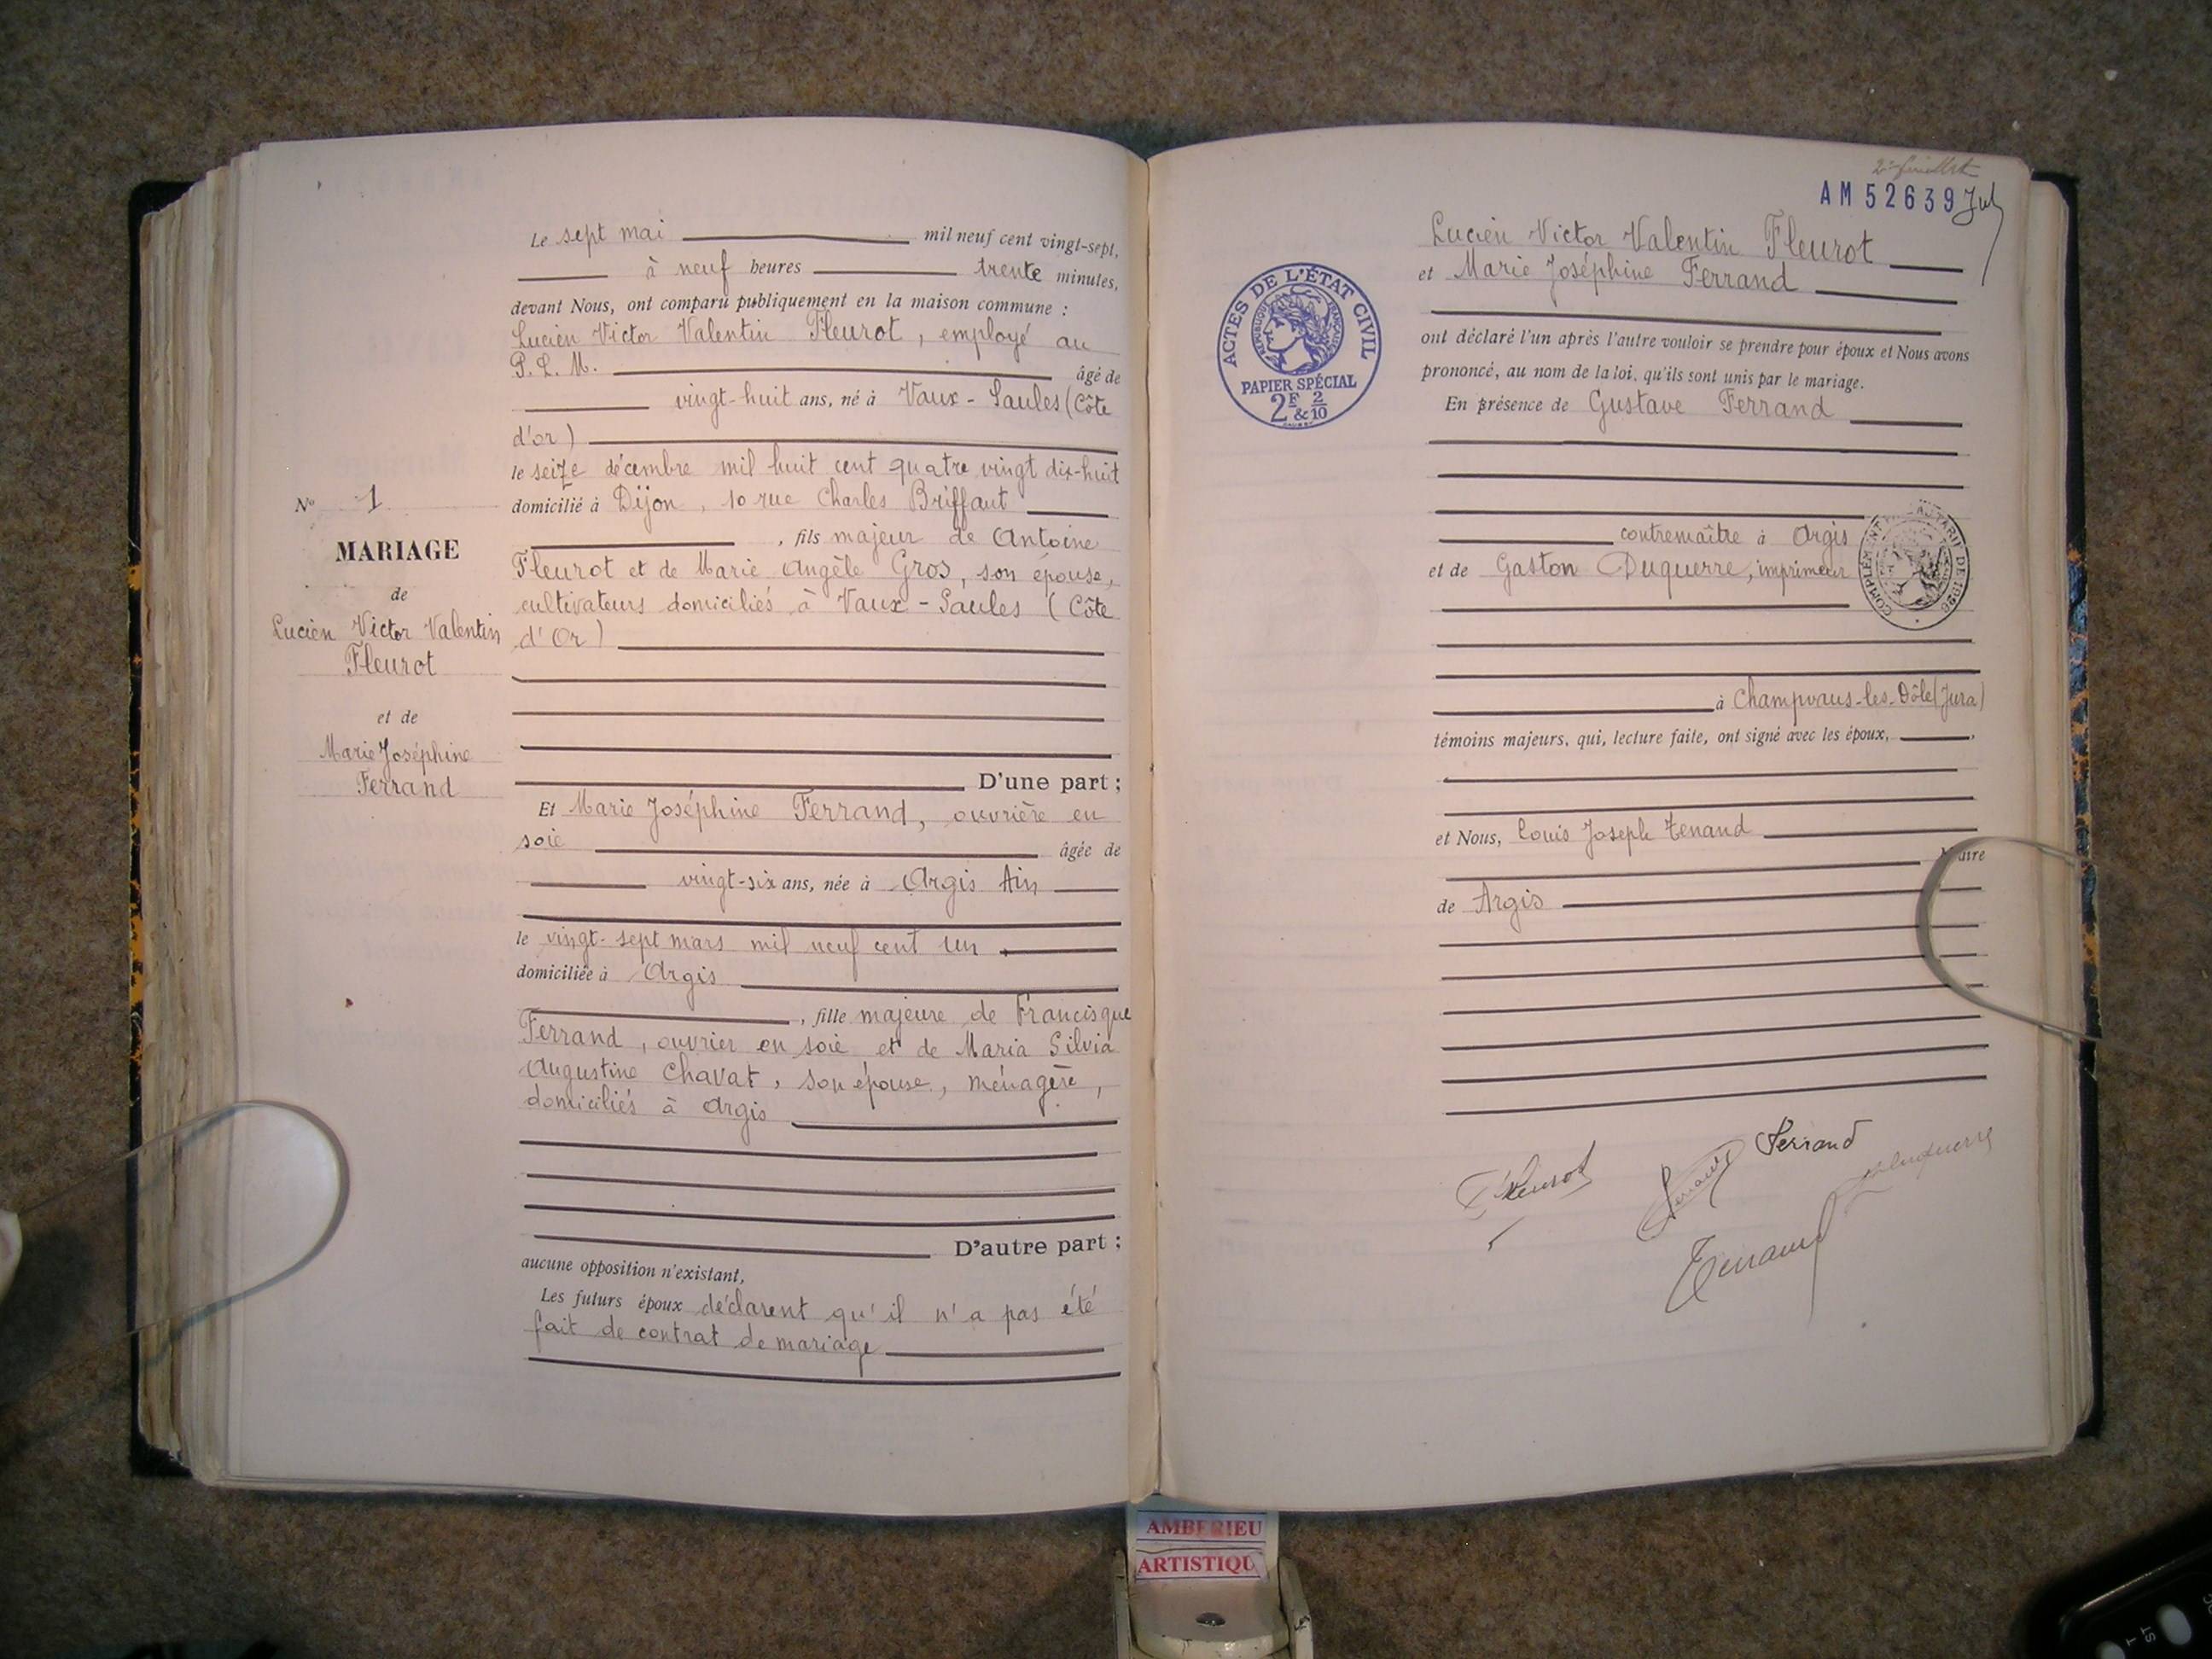 Nº 1
MARIAGE
de
Lucien Victor Valentin
Fleurot
et de
Marie Joséphine
Ferrand
Le sept mai mil neuf cent vingt-sept,
à neuf heures trente minutes,
devant Nous, ont comparu publiquement en la maison commune :
Lucien Victor Valentin Fleurot, employé au
P. L. M. âgé de
vingt-huit ans, né à Vaux-Saules (Côte
d'or)
le seize décembre mil huit cent quatre vingt dix-huit
domicilié à Dijon, 10 rue Charles Briffaut
, fils majeur de Antoine
Fleurot et de Marie Angèle Gros, son épouse,
cultivateurs domiciliés à Vaux-Saules (Côte
d'Or)
D'une part ;
Et Marie Joséphine Ferrand, ouvrière en
soie âgée de
vingt-six ans, née à Argis Ain
le vingt-sept mars mil neuf cent un
domiciliée à Argis
, fille majeure de Francisque
Ferrand, ouvrier en soie et de Maria Silvia
Augustine Chavat, son épouse, ménagère,
domiciliés à Argis
D'autre part ;
aucune opposition n'existant,
Les futurs époux déclarent qu'il n'a pas été
fait de contrat de mariage
2e feuillet
AM 52639
Lucien Victor Valentin Fleurot
et Marie Joséphine Ferrand
ACTES DE L'ÉTAT CIVIL
RÉPUBLIQUE FRANÇAISE
PAPIER SPÉCIAL
2F & 2/10
ont déclaré l'un après l'autre vouloir se prendre pour époux et Nous avons
prononcé, au nom de la loi, qu'ils sont unis par le mariage.
En présence de Gustave Ferrand
contremaître à Argis
et de Gaston Duquerre, imprimeur
COMPLÉMENT AU TARIF DE 1926
à Champvaus-les-Dôle (Jura)
témoins majeurs, qui, lecture faite, ont signé avec les époux,
et Nous, Louis Joseph Tenand
Maire
de Argis
Fleurot
Ferrand
Ferrand
Duquerre
Tenand
AMBERIEU
ARTISTIQU